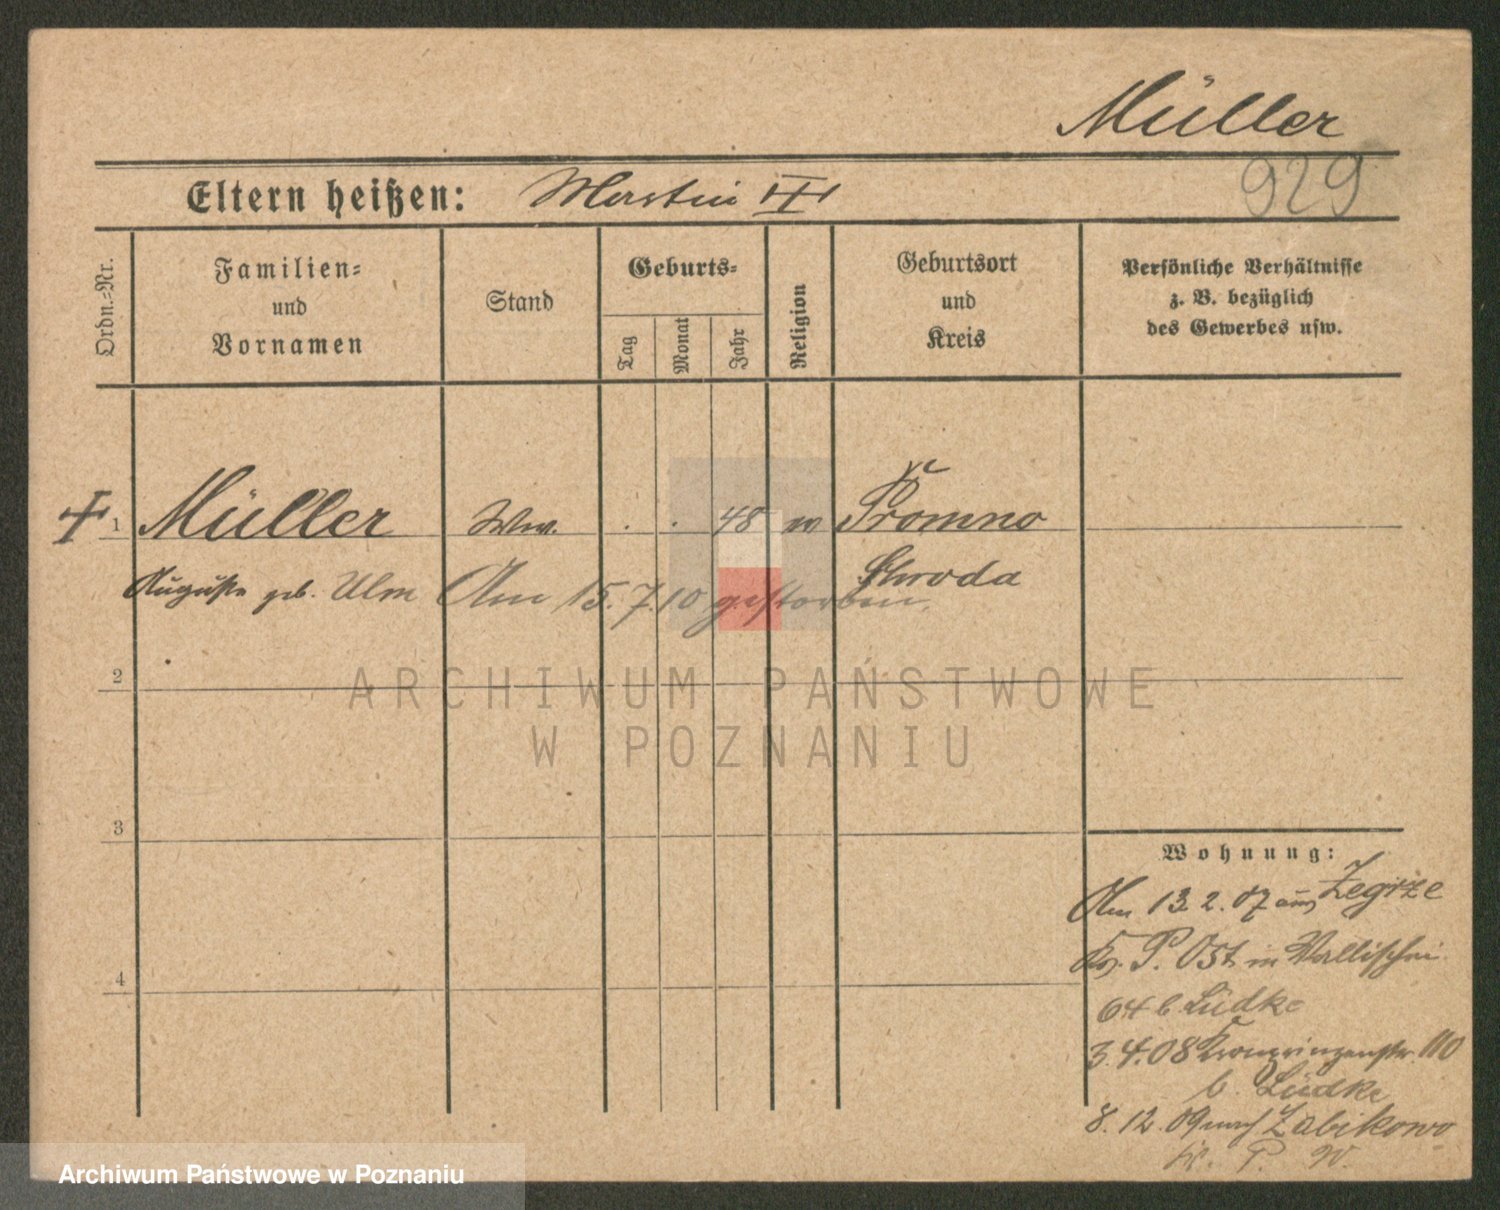 Müller
929
Eltern heißen: Martin III
Ordn.=Nr.
Familien=
und
Vornamen
Stand
Geburts=
Tag
Monat
Jahr
Religion
Geburtsort
und
Kreis
Persönliche Verhältnisse
z. B. bezüglich
des Gewerbes usw.
1 Müller Ww. . . 48 Promno
Auguste geb. Ulm Schroda
Am 15.7.10 gestorben.
2
ARCHIWUM PAŃSTWOWE
W POZNANIU
3
Wohnung:
Am 13.2.07 aus Zegrze
Kr. P. Ost in Wallischei
4
64 b. Lüdke
3.4.08 Kronprinzenstr. 110
b. Lüdke
8.12.09 nach Zabikowo
Kr. P. W.
Archiwum Państwowe w Poznaniu